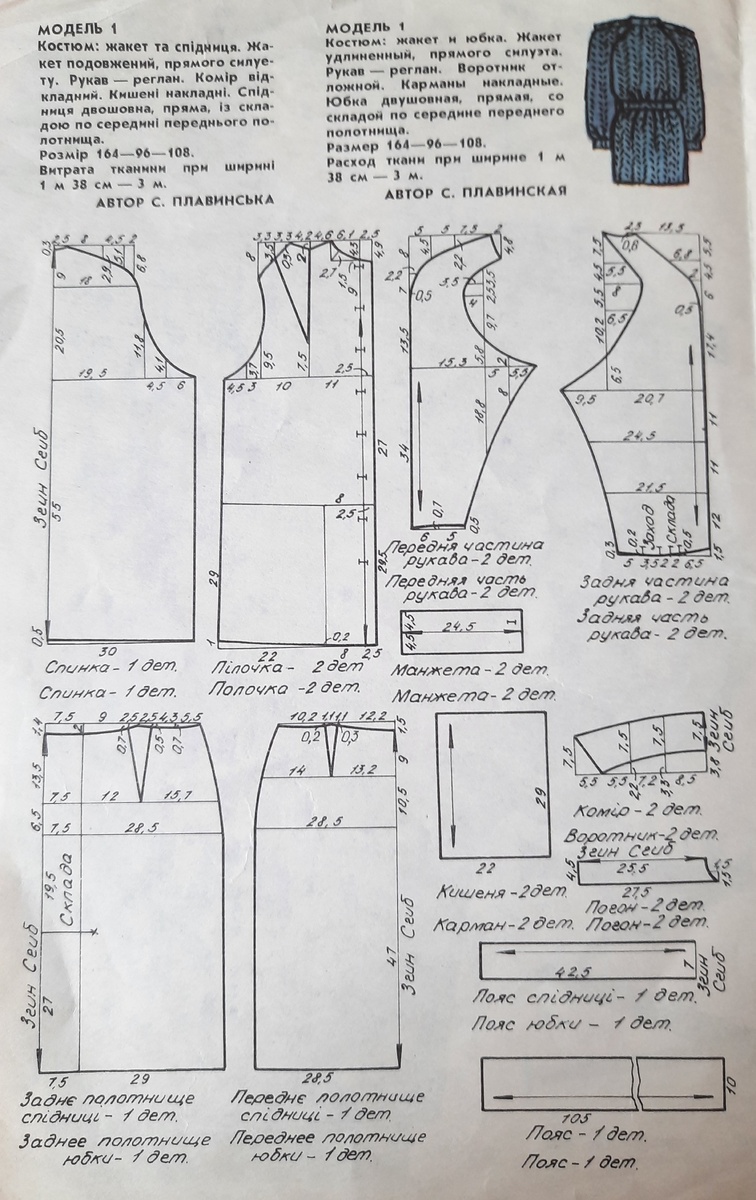 МОДЕЛЬ 1
Костюм: жакет та спідниця. Жа-
кет подовжений, прямого силуе-
ту. Рукав — реглан. Комір від-
кладний. Кишені накладні. Спід-
ниця двошовна, пряма, із скла-
дою по середині переднього по-
лотнища.
Розмір 164—96—108.
Витрата тканини при ширині
1 м 38 см — 3 м.
АВТОР С. ПЛАВИНСЬКА
МОДЕЛЬ 1
Костюм: жакет и юбка. Жакет
удлиненный, прямого силуэта.
Рукав — реглан. Воротник от-
ложной. Карманы накладные.
Юбка двушовная, прямая, со
складой по середине переднего
полотнища.
Размер 164—96—108.
Расход ткани при ширине 1 м
38 см — 3 м.
АВТОР С. ПЛАВИНСКАЯ
0,3 2,5 8 4,5 2
2,9 5,1 6,8
9 18
20,5 11,8
19,5 4,1
4,5 6
Згин Сгиб
55
0,5
30
Спинка - 1 дет.
Спинка - 1 дет.
3,3 3,3 4,2 4,6 6,1 2,5
8 3,5 0,5 2 4,5 4,9
2,7 1,5 9
3,7 9,5 7,5 2,5
4,5 3 10 11
27
8
2,5
29 29,5
1 0,2
22 8 2,5
Пілочка - 2 дет
Полочка - 2 дет.
5 5 7,5 2
8 4,5 2,2 4,8
2,2 5,5 2,5 3,5
7 0,5 4
9,7
13,5 5,8
15,3 2
5 5,5
8
18,8
34
0,7
6 5 0,5
Передня частина
рукава - 2 дет.
Передняя часть
рукава - 2 дет.
2,5 13,5
7,5 0,8 5,5
6,8
4,5 5,5 2 4,5
5,5 8 6
0,5
6,5
10,2 17,4
6,5
9,5 20,7
11
24,5
11
21,5
Заход Склада
12
0,3 0,2 0,5
5 3,5 2 2 6,5 1,5
Задня частина
рукава - 2 дет.
Задняя часть
рукава - 2 дет.
4,5 4,5
24,5
Манжета - 2 дет.
Манжета - 2 дет.
7,5 9 2,5 2,5 4,3 5,5
1,4 2
0,7 0,5 0,7
13,5
7,5 12 15,7
6,5
7,5 28,5
19,5 Склада
Згин Сгиб
27
7,5 29
Заднє полотнище
спідниці - 1 дет.
Заднее полотнище
юбки - 1 дет.
10,2 1,1 1,1 12,2
1,5
0,2 0,3
9
14 13,2
10,5
28,5
47 Згин Сгиб
28,5
Переднє полотнище
спідниці - 1 дет.
Переднее полотнище
юбки - 1 дет.
29
22
Кишеня - 2 дет.
Карман - 2 дет.
7,5 7,5 7,5 7,5
Згин Сгиб
3,8
5,5 5,5 2,2 7,2 3,5 8,5
Комір - 2 дет.
Воротник - 2 дет.
Згин Сгиб
4,5 25,5 1,5
1,5
27,5
Погон - 2 дет.
Погон - 2 дет.
42,5 7
Згин Сгиб
Пояс спідниці - 1 дет.
Пояс юбки - 1 дет.
105 10
Пояс - 1 дет.
Пояс - 1 дет.